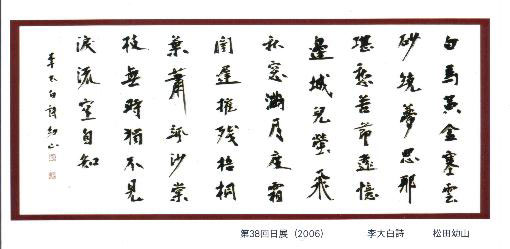 白馬黄金塞雲
砂繞夢思那
堪愁苦節遠憶
邊城兒螢飛
秋窓満月度霜
閨遲摧残梧桐
葉蕭颯沙棠
枝無時獨不見
淚流空自知
李太白詩 幼山
第38回日展（2006） 李太白詩 松田幼山